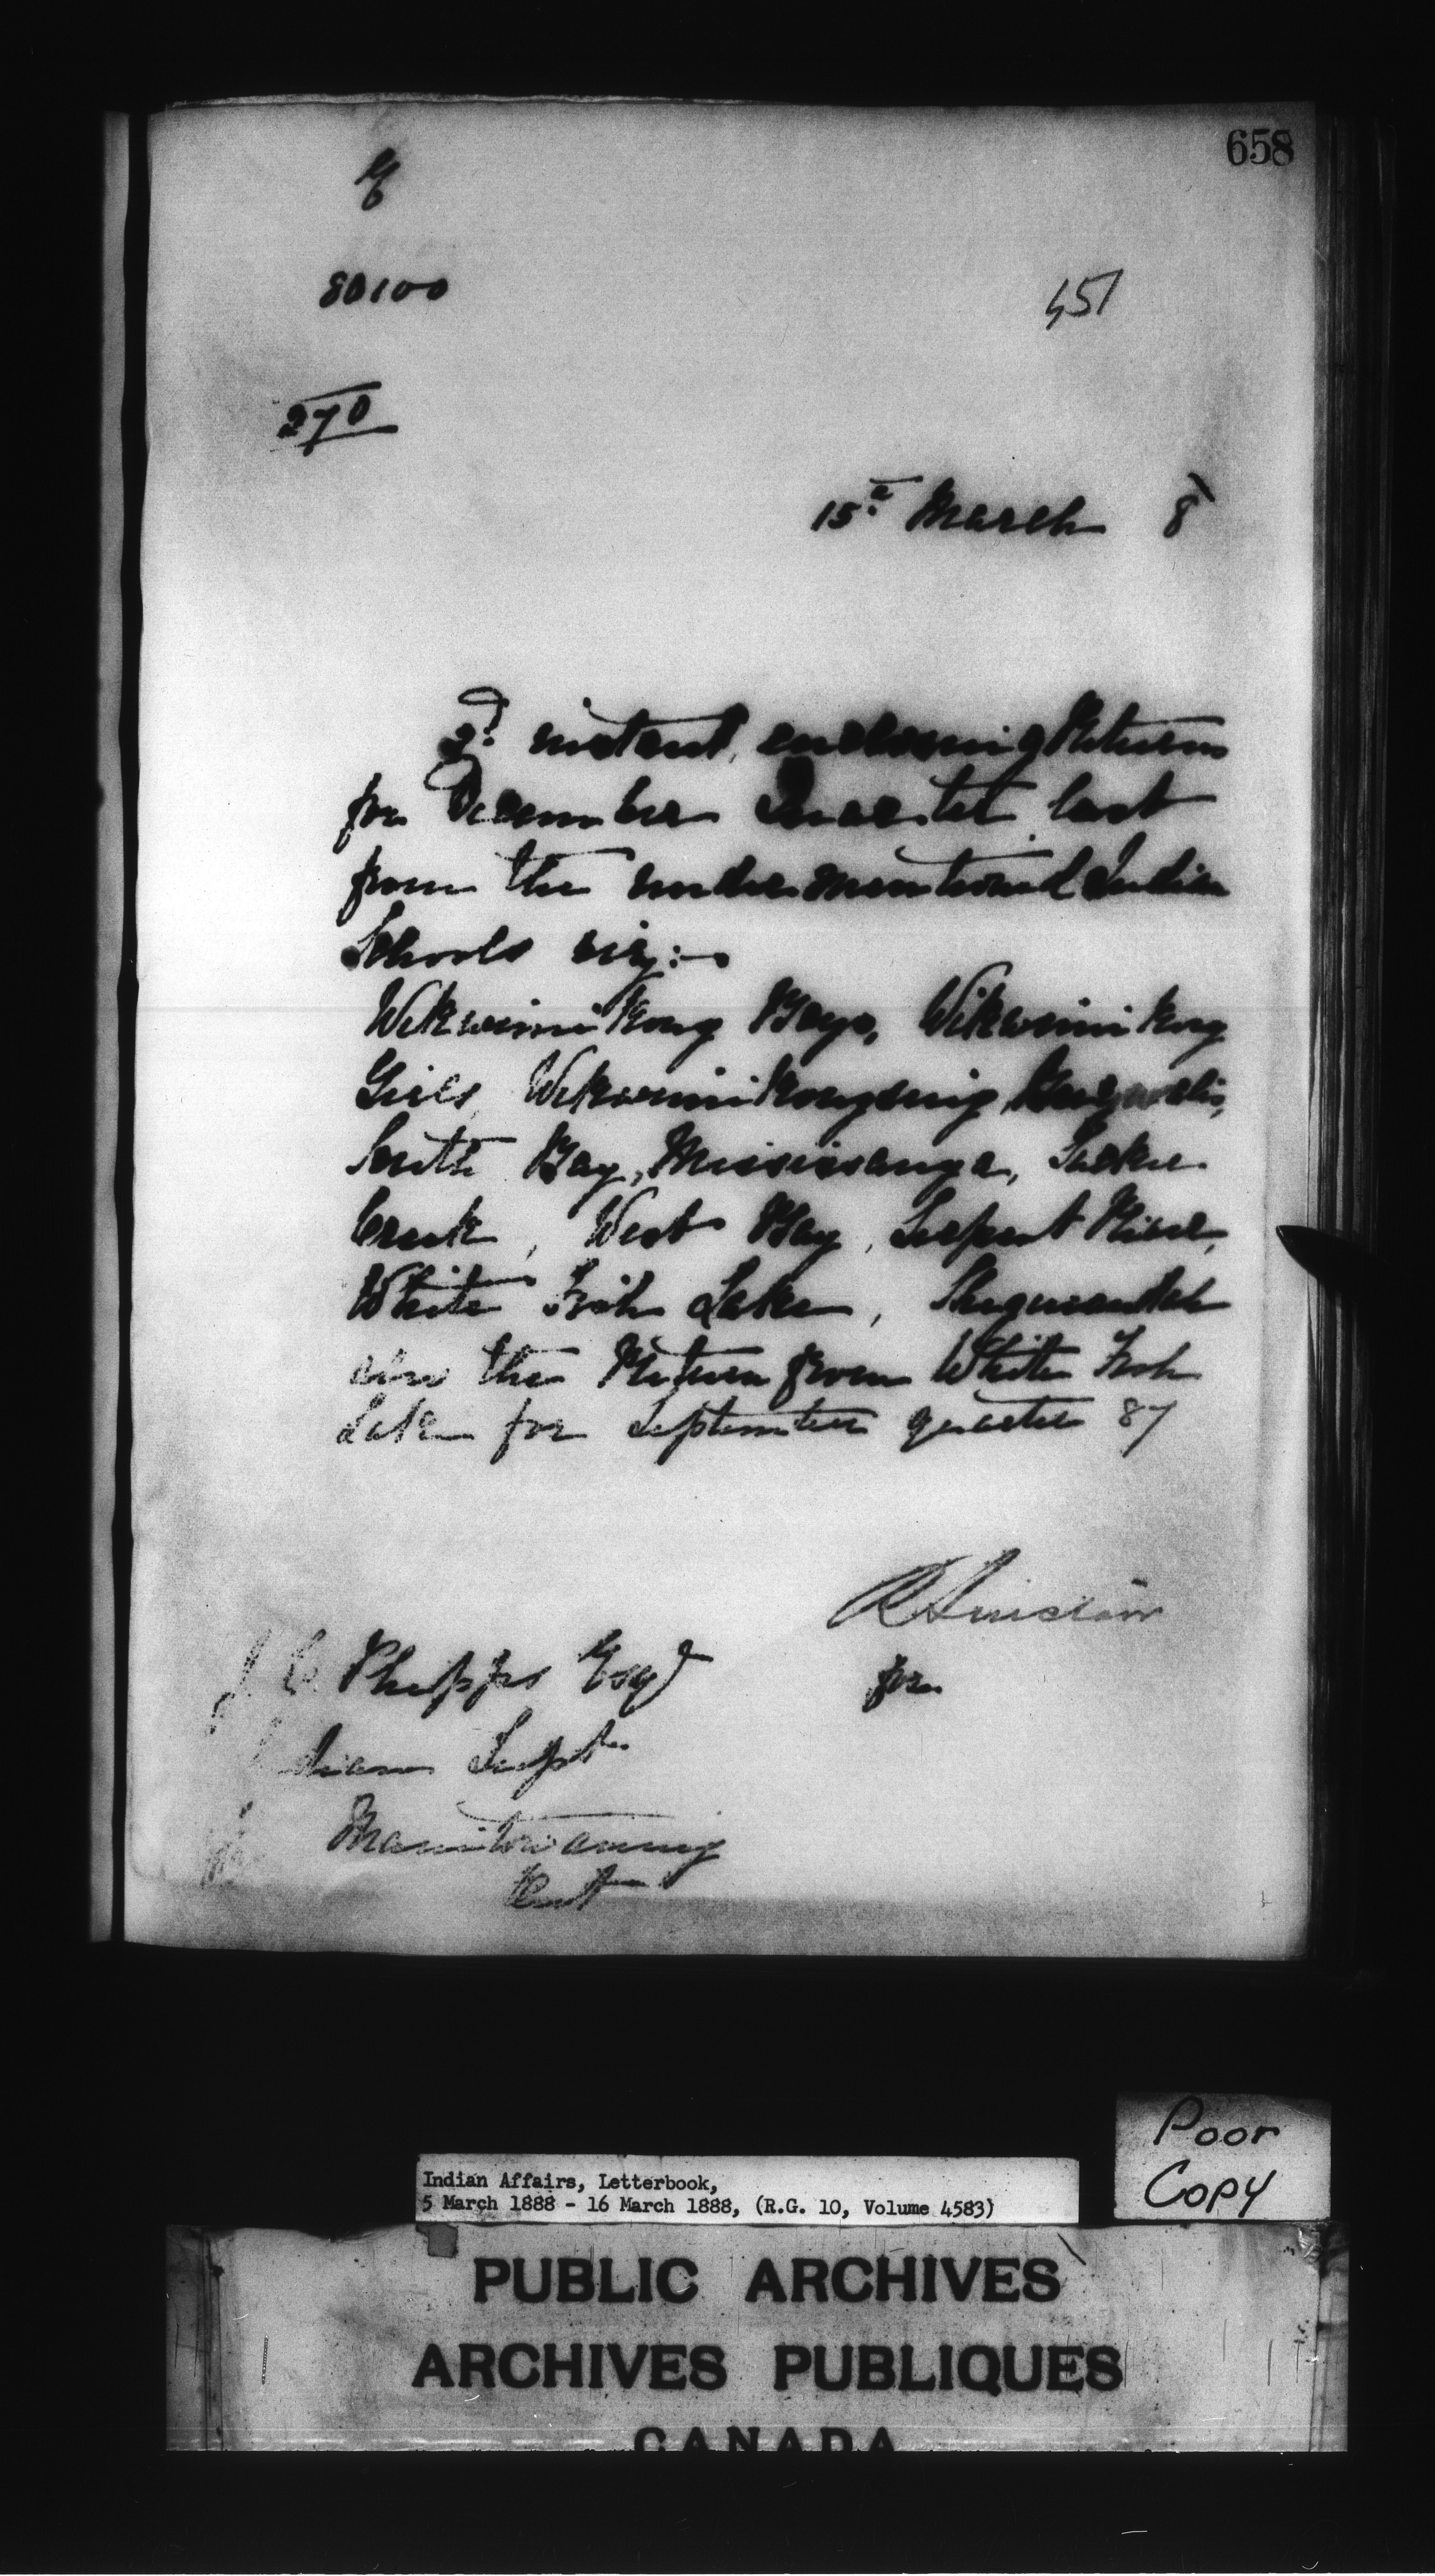 658
80100
451
270
15th March 8
2d instant, enclosing Returns
for December Quarter last
from the undermentioned Indian
Schools viz:-
Wikwemikong Boys, Wikwemikong
Girls, Wikwemikongsing,
South Bay, Mississauga, Sucker
Creek, West Bay, Serpent River,
White Fish Lake, Sheguiandah
also the Return from White Fish
Lake for September quarter 87
R Sinclair
for
J. C. Phipps Esqr
Indian Supt.
Manitowaning
Ont
Poor
Copy
Indian Affairs, Letterbook,
5 March 1888 - 16 March 1888, (R.G. 10, Volume 4583)
PUBLIC ARCHIVES
ARCHIVES PUBLIQUES
CANADA